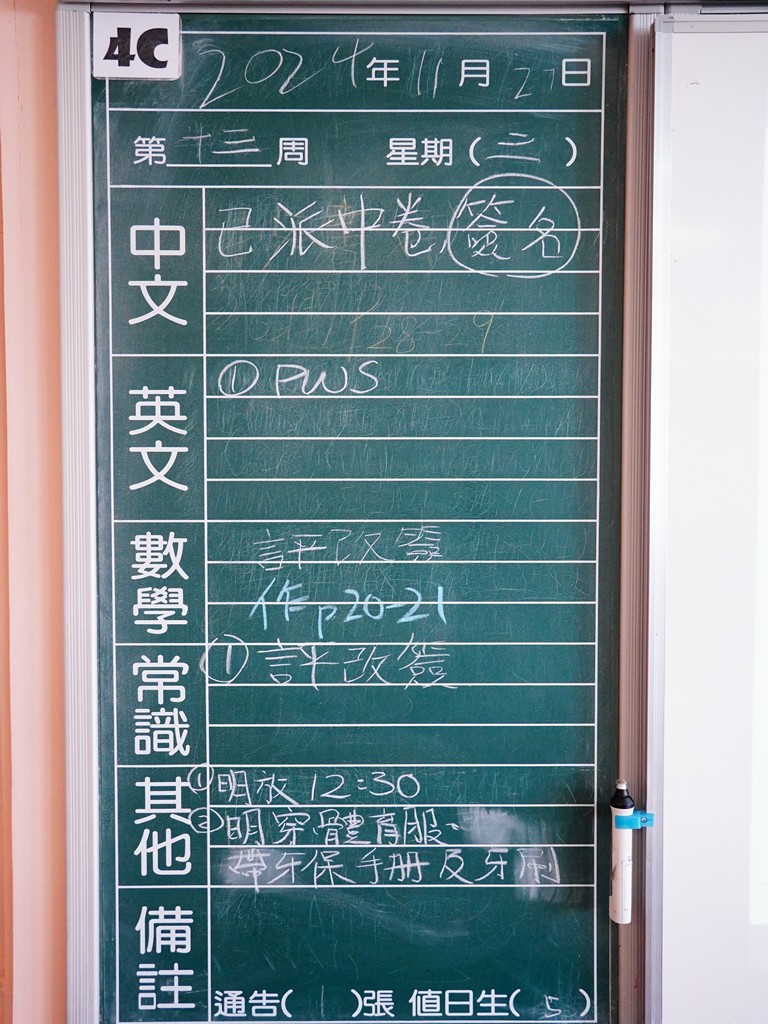 4C
2024年11月27日
第十三周 星期(三)
中文
已派中卷,簽名
28-29
英文
① PWS
數學
評改簽
作p20-21
常識
① 評改簽
其他
① 明放12:30
② 明穿體育服、
帶牙保手冊及牙刷
備註
通告(1)張 值日生(5)